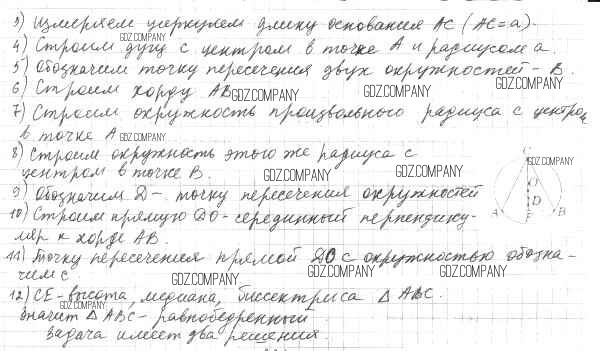 3) Измеряем циркулем длину основания AC (AC=a).
4) Строим дугу с центром в точке A и радиусом a.
GDZ.COMPANY
5) Обозначим точку пересечения двух окружностей - B.
6) Строим хорду AB
GDZ.COMPANY GDZ.COMPANY GDZ.COMPANY
7) Строим окружность произвольного радиуса с центром
в точке A
GDZ.COMPANY
8) Строим окружность этого же радиуса с
центром в точке B.
GDZ.COMPANY GDZ.COMPANY GDZ.COMPANY
9) Обозначим D - точку пересечения окружностей
10) Строим прямую DO - серединный перпендику-
ляр к хорде AB.
C
O
D
A B
11) Точку пересечения прямой DO с окружностью обозна-
чим C
GDZ.COMPANY GDZ.COMPANY GDZ.COMPANY
12) CE - высота, медиана, биссектриса △ ABC.
GDZ.COMPANY
Значит △ ABC - равнобедренный
Задача имеет два решения.